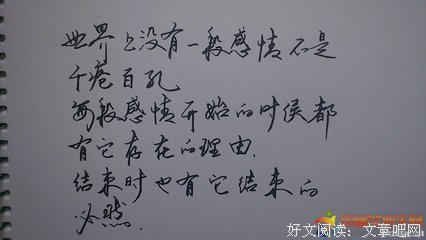 世界上没有一段感情不是
千疮百孔
每段感情开始的时侯都
有它存在的理由.
结束时也有它结束的
必然.
好文阅读：文章吧网